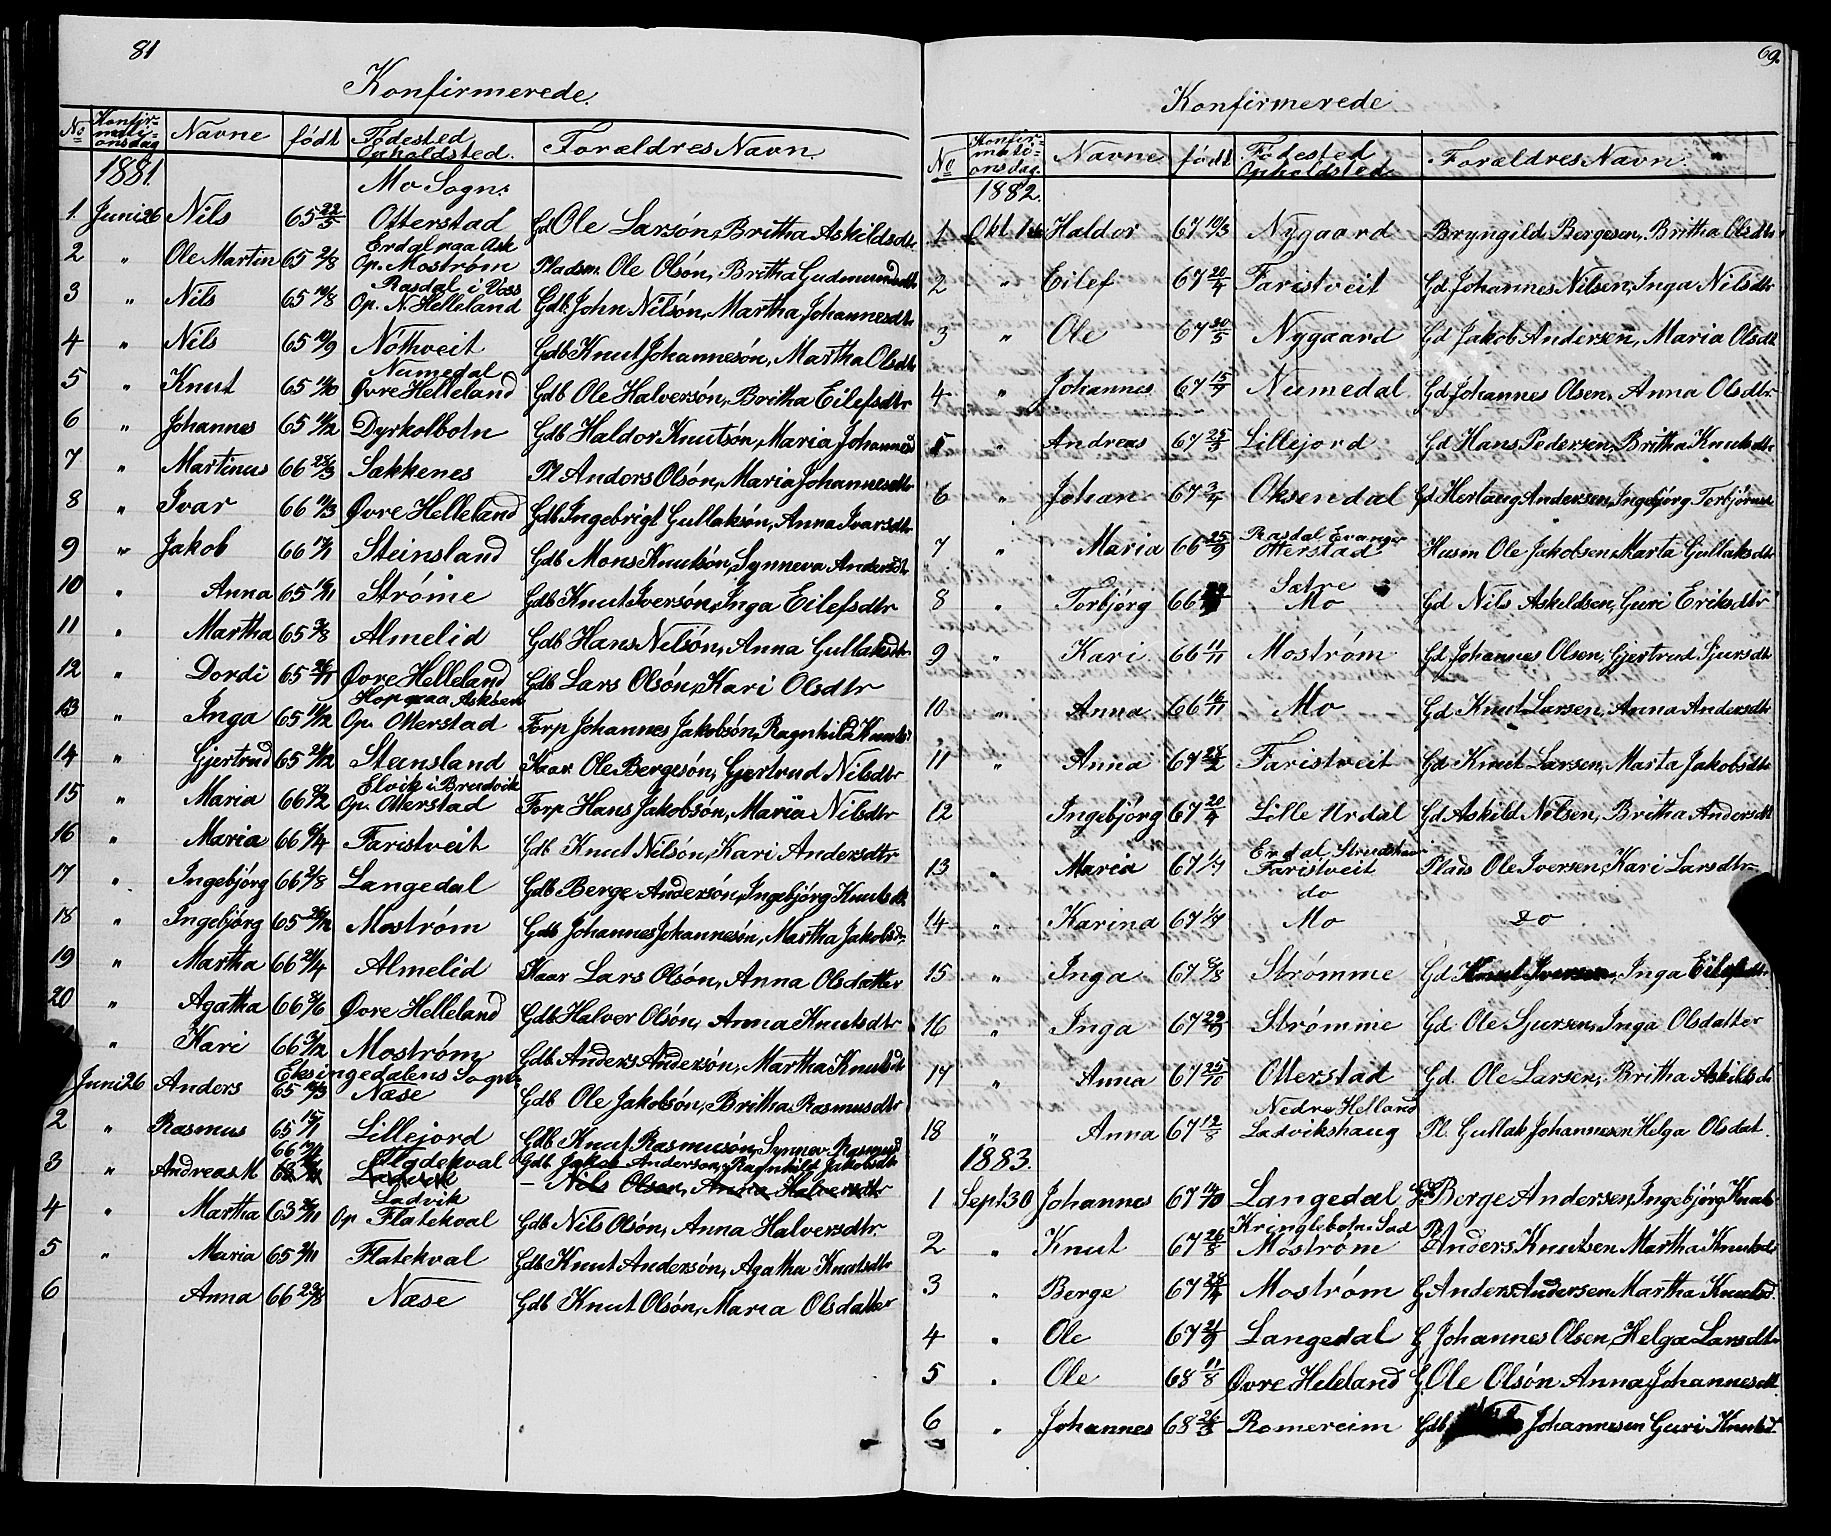 81
Konfirmerede.
No Konfirmationsdag Navne født Fødested Opholdsted. Forældres Navn.
1881. Mo Sogn:
1. Juni 26 Nils 65 22/5 Otterstad Gd Ole Larsón, Britha Askildsdtr
2 " Ole Martin 65 2/8 Erdal paa Ask Op. Mostrøm Pladsm. Ole Olsón, Britha Gudmundsdtr
3 " Nils 65 10/8 Rasdal i Voss Op. N. Helleland Gdb. John Nilsón, Martha Johannesdtr
4 " Nils 65 19/9 Nóthveit Gdb Knut Johannesón, Martha Olsdtr
5 " Knut 65 11/10 Numedal Øvre Helleland Gdb Ole Halversón, Britha Eilefsdtr
6 " Johannes 65 11/12 Dyrkolbotn Gdb Haldor Knutsón, Maria Johannesd
7 " Martinus 66 25/3 Sakkenes Pl Andors Olsón, Maria Johannesdtr
8 " Ivar 66 11/3 Øvre Helleland Gdb Ingebrigt Gullaksón, Anna Ivarsdtr
9 " Jakob Steinsland Gdb Mons Knutsón, Synneva Andersdtr
10 " Anna 65 16/11 Stróme Gdb Knut Iversón, Inga Eilefsdtr
11 " Martha 65 3/8 Almelid Gdb Hans Nelsón, Anna Gullaksdtr
12 " Dordi 65 26/11 Øvre Helleland Gdb Lars Olsón, Kari Olsdtr
13 " Inga 65 11/12 Hop paa Askóen Op. Otterstad Forp Johannes Jakobsón, Ragnhild Knuts
14 " Gjertrud 65 24/12 Stensland Kaar Ole Bergesón, Gjertrud Nilsdtr
15 " Maria Elvik i Bredvik Op. Otterstad Forp Hans Jakobsón, Maria Nilsdtr
16 " Maria 66 6/4 Faristveit Gdb Knut Nilsón, Kari Andersdtr
17 " Ingebjórg 66 2/8 Langedal Gdb Berge Andersón, Ingebjórg Knutsdt
18 " Ingebjórg 65 26/12 Mostróm Gdb Johannes Johannesón, Martha Jakobsd
19 " Martha 66 24/4 Almelid Kaar Lars Olsón, Anna Olsdatter
20 " Agatha Øvre Helleland Gdb Halver Olsón, Anna Knutsdtr
" Kari Mostróm Gdb Anders Andersón, Martha Knutsdt
Eksingedalens Sogn:
Juni 26 Anders Næse Gdb Ole Jakobsón, Britha Rasmusdtr
2 " Rasmus 65 15/7 Lillejord Gdb Knut Rasmusón, Synnev Rasmusd
3 " Andreas M Flatekval Gdb Jakob Anderson, Ragnhild Jakobsdtr
Ladvik - Nils Olson, Anna Halversdtr
4 " Martha Ladvik Op Flatekval Gdb Nils Olsón, Anna Halversdtr.
5 " Maria Flatekval Gdb Knut Andersón, Agatha Knutsdtr
6 Anna 66 23/8 Næse Gdb Knut Olsón, Maria Olsdatter
69.
Konfirmerede
No Konfirmationsdag. Navne født Fødested Opholdsted Forældres Navn.
1882.
1 Okt 1ste Haldor 67 10/3 Nygaard Bryngild Bergesen, Britha Olsdtr
2 " Eilef 67 20/4 Faristveit Gd Johannes Nilsen, Inga Nilsdtr
3 " Ole 67 30/5 Nygaard Gd Jakob Andersen, Maria Olsdt
4 " Johannes Numedal Gd Johannes Olsen, Anna Olsdtr.
5 " Andreas 67 25/3 Lillejord Gd Hans Pedersen, Britha Knutsdtr
6 " Johan 67 3/4 Oksendal Gd Herlaug Andersen, Ingebjórg Torbjórnsd
7 " Maria 66 25/9 Rasdal Evanger Otterstad Husm Ole Jakobsen, Marta Gullaksdtr
8 " Torbjórg 66 Sætre Mo Gd Nils Askeldsen, Guri Eriksdtr
9 " Kari 66 11/11 Mostróm Gd Johannes Olsen, Gjertrud Sjursdt
10 " Anna 66 16/11 Mo Gd Knut Larsen, Anna Andersdtr
11 " Anna 67 28/2 Faristveit Gd Knut Larsen, Marta Jakobsdtr
12 Ingebjórg 67 20/4 Lille Urdal Gd Askild Nilsen, Britha Andersdt
13 " Maria Erdal Strudshavn Faristveit Plads Ole Iversen, Kari Larsdtr
14 " Karina do Mo do
15 " Inga Strømme Gd Knut Iversen, Inga Eilefsdtr
16 " Inga 67 29/9 Strømme Gd Ole Sjursen, Inga Olsdatter
17 " Anna 67 25/10 Otterstad Gd. Ole Larsen, Britha Askildsdt
18 " Anna 67 12/8 Nedre Helland Ladvikshaug Pl. Gullak Johannesen Helga Olsdat.
1883.
1 Sept. 30 Johannes 67 14/10 Langedal Gdb Berge Andersen, Ingebjórg Knuts
2 " Knut 67 26/8 Kringlebotn Sad Mostróm Pl Anders Knutsen Martha Knutsd
3 " Berge Mostróm G Anders Andersen Martha Knutsd.
4 " Ole 67 21/9 Langedal G Johannes Olsen, Helga Larsdtr
5 " Ole 68 11/8 Øvre Heleland G. Ole Olsón Anna Johannesdt
6 " Johannes 68 26/3 Romereim Gdb Johannesen Guri Knutsd.